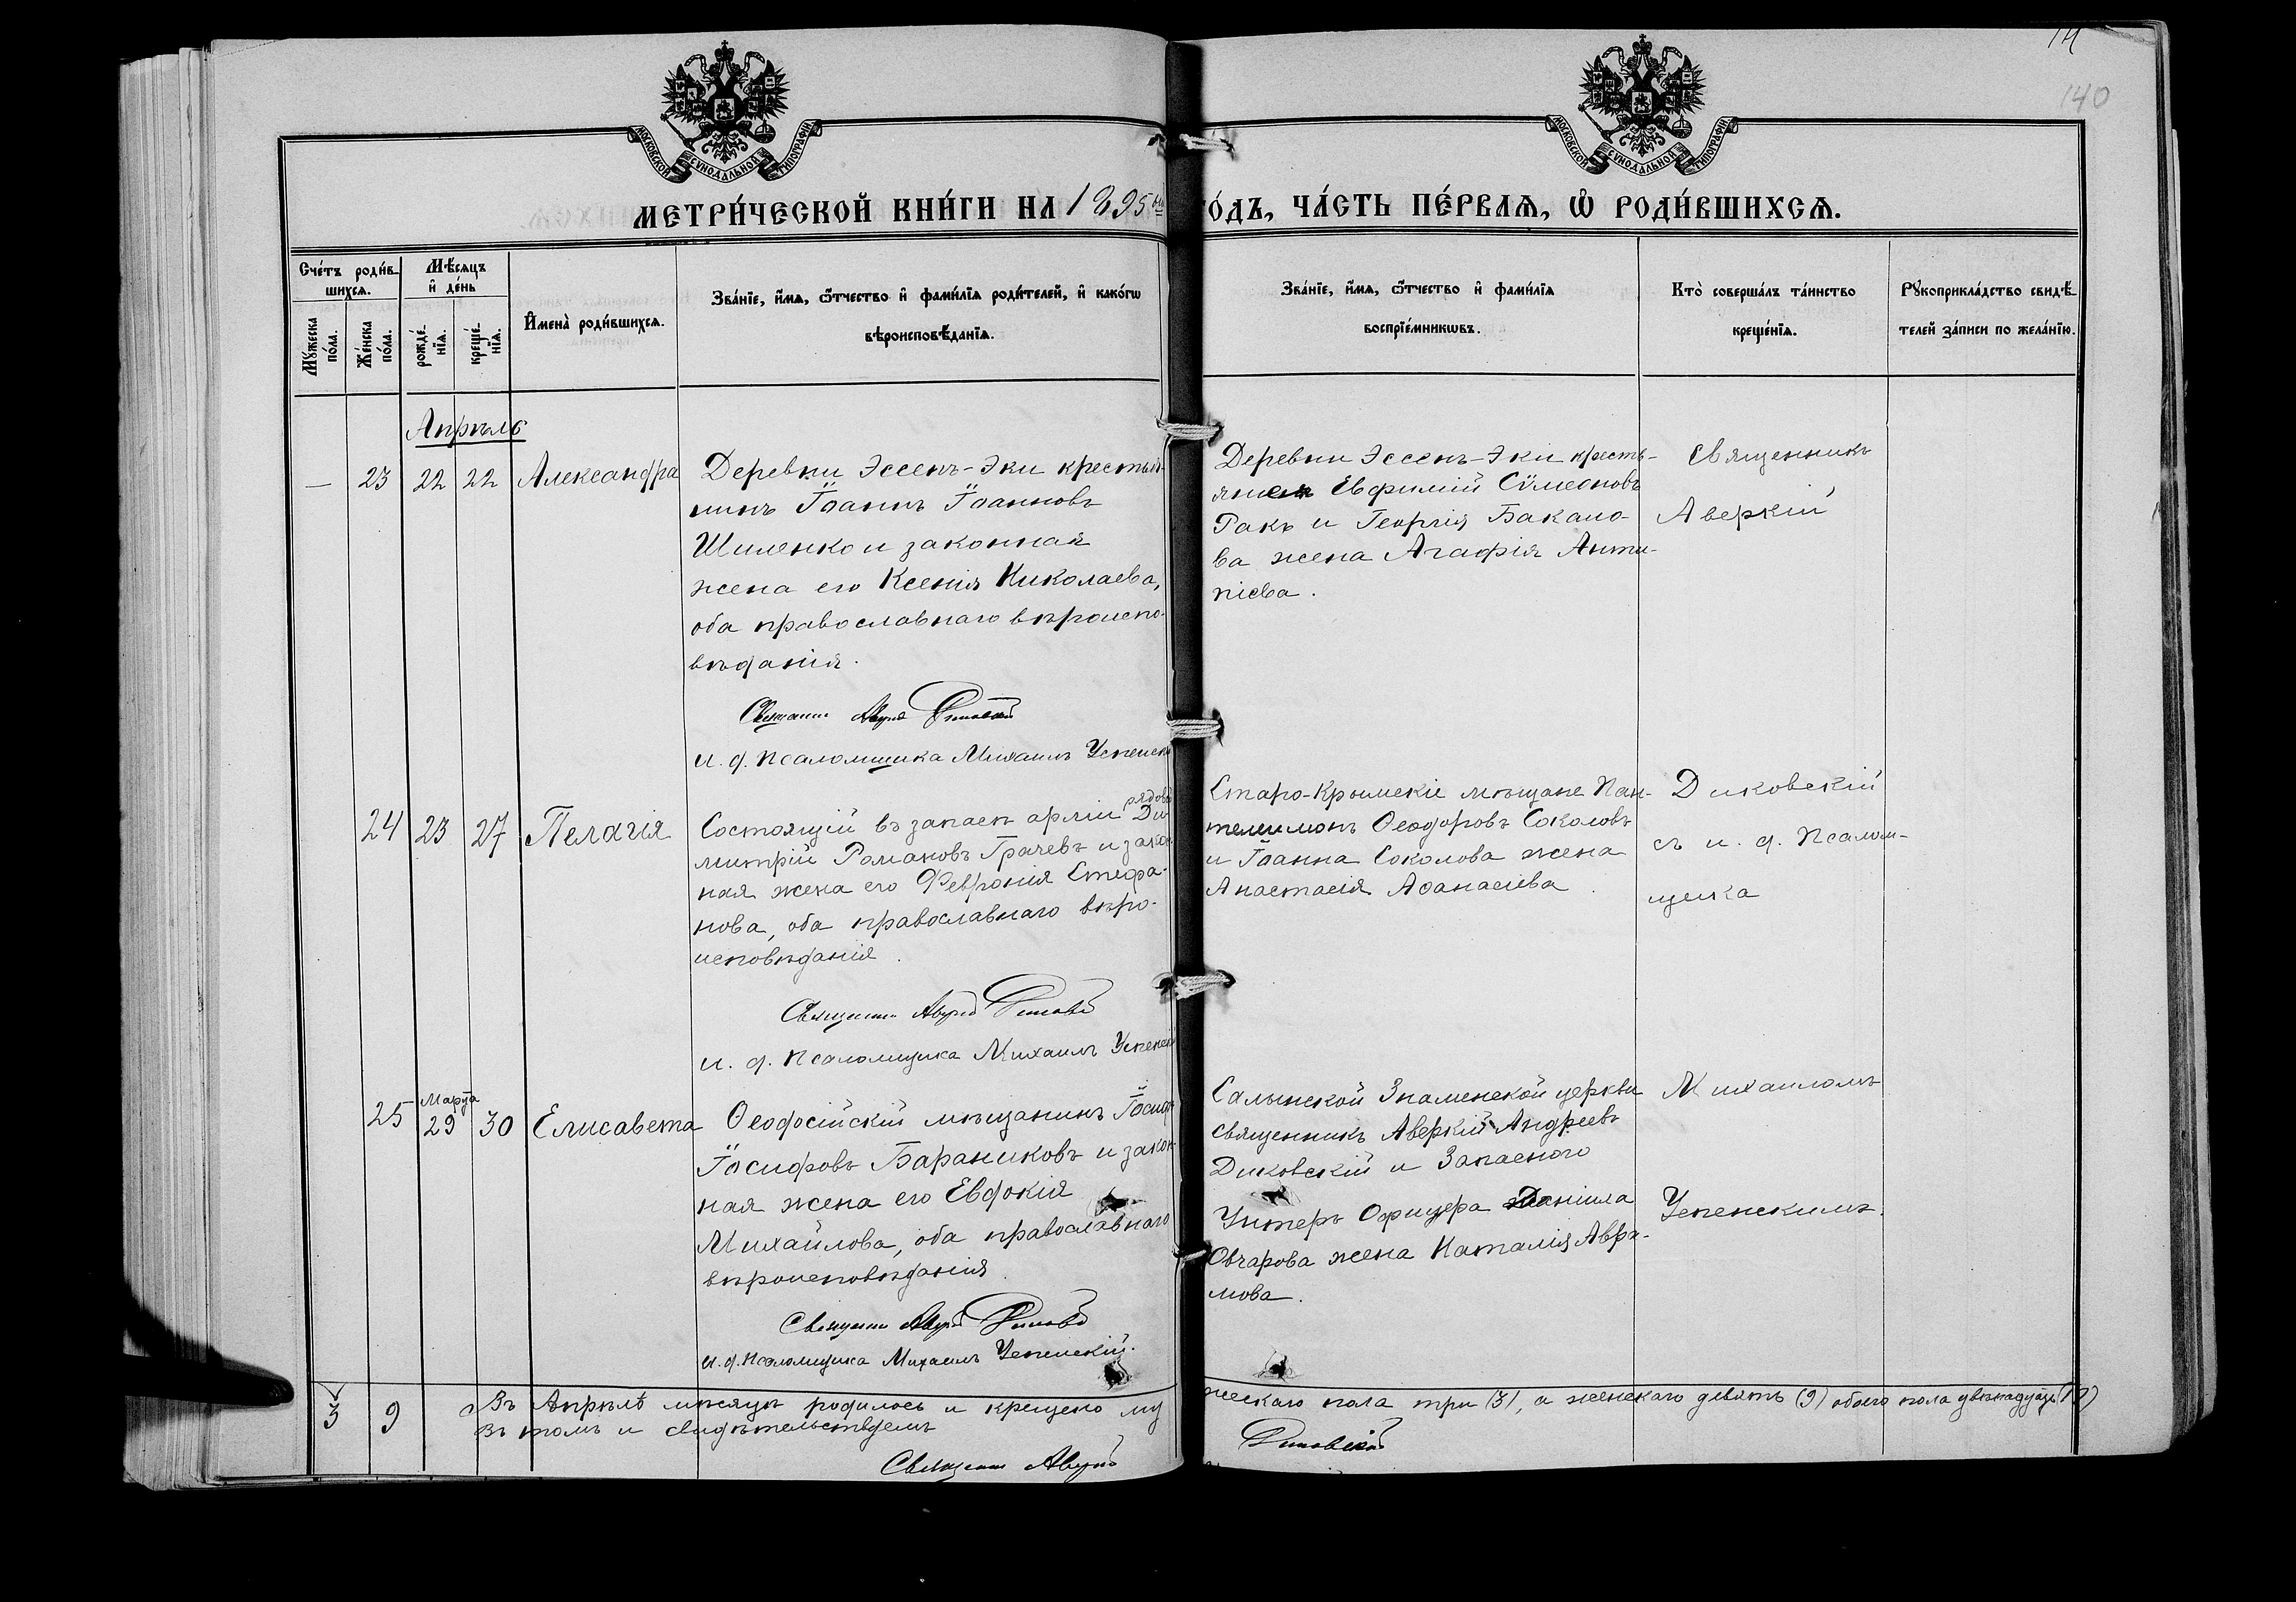 14
140
МОСКОВСКОЙ СУНОДАЛЬНОЙ ТИПОГРАФІИ
МОСКОВСКОЙ СУНОДАЛЬНОЙ ТИПОГРАФІИ
МЕТРИ́ЧЕСКОЙ КНИ́ГИ НА 1895й
О́ДЪ, ЧА́СТЬ ПЕ́РВАѦ, Ѡ РОДИ́ВШИХСѦ.
Сче́тъ роди́в-
шихсѧ.
Мꙋ́жеска по́ла.
Же́нска по́ла.
Мѣ́сѧцъ
и҆ де́нь
рожде́-
нїѧ.
креще́-
нїѧ.
И҆мена̀ роди́вшихсѧ.
Зва́нїе, и҆́мѧ, ѻ҆́тчество и҆ фами́лїѧ роди́телей, и҆ како́гѡ
вѣроисповѣ́данїѧ.
Зва́нїе, и҆́мѧ, ѻ҆́тчество и҆ фами́лїѧ
воспрїе́мникѡвъ.
Кто̀ соверша́лъ та́инство
креще́нїѧ.
Рꙋкоприкла́дство свидѣ́-
телей за́писи по жела́нїю.
Апрѣль
— 23 22 22 Александра
Деревни Эссенъ-Эки крестья-
нинъ Іоаннъ Іоанновъ
Шиленко и законная
жена его Ксенія Николаева,
оба православнаго вѣроиспо-
вѣданія.
Священникъ Аверкій Диковскій
и. д. псаломщика Михаилъ Успенскі
Деревни Эссенъ-Эки кресть-
янинъ Евфимій Сѵмеоновъ
Ракъ и Георгія Бакало-
ва жена Агафія Анти-
піева.
Священникъ
Аверкій
24 23 27 Пелагія
рядовой
Состоящій въ запасѣ арміи Ди-
митрій Романовъ Грачевъ и закон-
ная жена его Феврония Стефа-
нова, оба православнаго вѣро-
исповѣданія.
Священникъ Аверкій Диковскій
и. д. псаломщика Михаилъ Успенскій
Старо-Крымскіе мѣщане Пан-
телеимонъ Ѳеодоровъ Соколовъ
и Іоанна Соколова жена
Анастасія Аѳанасіева.
Диковскій
съ и. д. Псалом-
щика
Марта
25 29 30 Елисавета
Ѳеодосійскій мѣщанинъ Іосифъ
Іосифовъ Бараниковъ и закон-
ная жена его Евдокія
Михайлова, оба православнаго
вѣроисповѣданія.
Священникъ Аверкій Диковскій
и. д. псаломщика Михаилъ Успенскій.
Салынской Знаменской церкви
священникъ Аверкій Андреевъ
Диковскій и Запаснаго
Унтеръ Офицера Даніила
Овчарова жена Наталія Авра-
мова.
Михаиломъ
Успенскимъ.
3 9 Въ Апрѣлѣ мѣсяцѣ родилось и крещено му
жескаго пола три (3), а женскаго девять (9) обоего пола двѣнадцать (12)
Въ томъ и свидѣтельствуемъ
Священникъ Аверкій
Диковскій